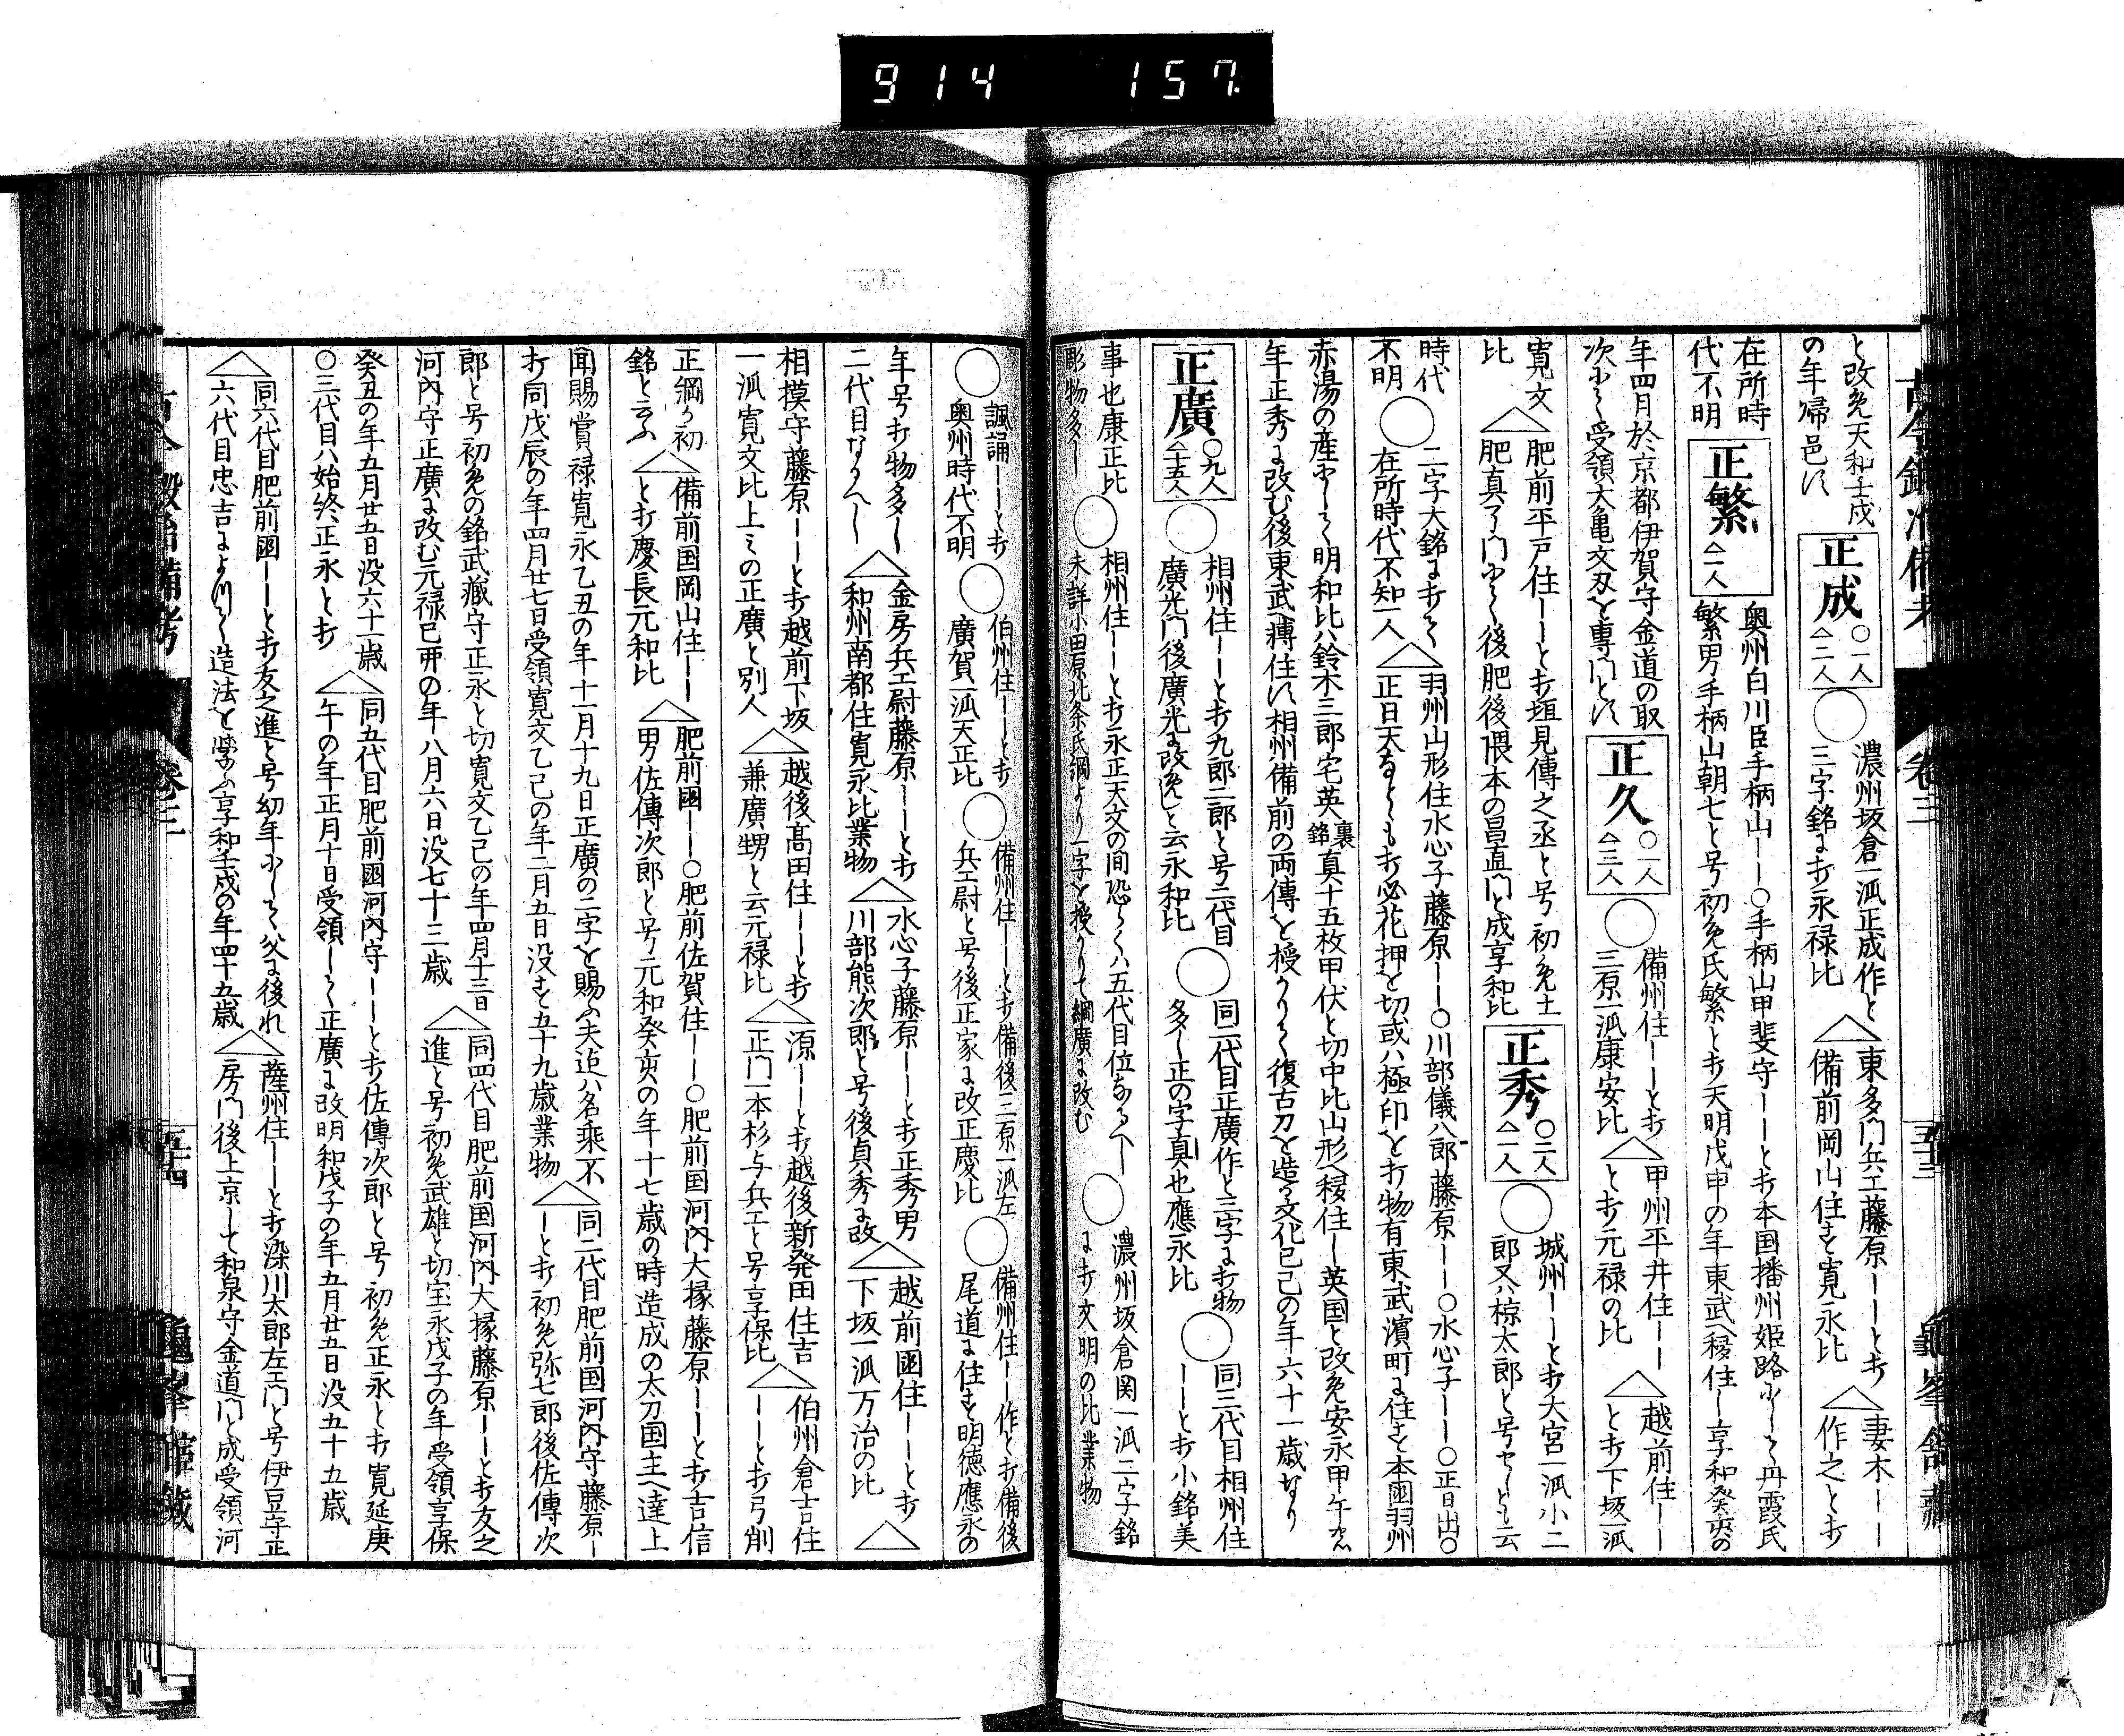 914 157
と改む天和壬戌
の年帰邑ス
正成
○一人
△二人
濃州坂倉一派正成作と
三字銘に打永禄比
東多門兵エ藤原ーーと打
備前岡山住す寛永比
妻木ーー
作之と打
在所時
代不明
正繁
△一人
奥州白川臣手柄山ーー○手柄山甲斐守ーーと打本国播州姫路にして丹霞氏
繁男手柄山朝七と号初め氏繁と打天明戊申の年東武へ移住し享和癸亥の
年四月於京都伊賀守金道の取
次にて受領大亀文刃を専門とス
正久
○一人
△三人
備州住ーーと打
三原一派康安比
甲州平井住ーー
と打元禄の比
越前住ーー
と打下坂一派
寛文
比
肥前平戸住ーーと打垣見傳之丞と号初め土
肥真了門にて後肥後隈本の昌直門と成享和比
正秀
○二人
△一人
城州ーーと打大宮一派小二
郎又ハ椋太郎と号セしとも云
時代
不明
二字大銘に打て
在所時代不知一人
羽州山形住水心子藤原ーー○川部儀八郎藤原ーー○水心子ーー○正日出○
正日天なとゝも打必花押を切或ハ極印を打物有東武濱町に住す本国羽州
赤湯の産にして明和比ハ鈴木三郎宅英
裏
銘
真十五枚甲伏と切中比山形へ移住し英国と改め安永甲午
年正秀に改む後東武へ轉住ス相州備前の両傳を授かりて復古刀を造る文化己巳の年六十一歳なり
正廣
○九人
△十五人
相州住ーーと打九郎二郎と号二代目
廣光門後廣光に改めしと云永和比
同二代目正廣作と三字に打物
多し正の字真也應永比
同三代目相州住
ーーと打小銘美
事也康正比
彫物多し
相州住ーーと打永正天文の间恐らくハ五代目位なるへし
未詳小田原北条氏綱より一字を授かりて綱廣に改む
濃州坂倉関一派二字銘
に打文明の比業物
諷誦ーーと打
奥州時代不明
伯州住ーーと打
廣賀一派天正比
備州住ーーと打備後三原一派左
兵エ尉と号後正家に改正慶比
備州住ーー作と打備後
尾道に住す明徳應永の
年号打物多し
二代目なるへし
金房兵エ尉藤原ーーと打
和州南都住寛永比業物
水心子藤原ーーと打正秀男
川部熊次郎と号後貞秀に改
越前国住ーーと打
下坂一派万治の比
相摸守藤原ーーと打越前下坂
一派寛文比上ミの正廣と別人
越後髙田住ーーと打
兼廣甥と云元禄比
源ーーと打越後新発田住吉
正門一本杉与兵エと号享保比
伯州倉吉住
ーーと打弓削
正綱か初
銘と云ふ
備前国岡山住ーー
と打慶長元和比
肥前国ーー○肥前佐賀住ーー○肥前国河内大掾藤原ーーと打吉信
男佐傳次郎と号元和癸亥の年十七歳の時造成の太刀国主へ達上
聞賜賞禄寛永乙丑の年十一月十九日正廣の二字を賜ふ夫迠ハ名乗不
打同戊辰の年四月廿七日受領寛文乙巳の年二月五日没す五十九歳業物
同二代目肥前国河内守藤原ー
ーと打初め弥七郎後佐傳次
郎と号初めの銘武蔵守正永と切寛文乙巳の年四月十三日
河内守正廣に改む元禄己卯の年八月六日没七十三歳
同四代目肥前国河内大掾藤原ーーと打友之
進と号初め武雄と切宝永戊子の年受領享保
癸丑の年五月廿五日没六十一歳
○三代目ハ始終正永と打
同五代目肥前国河内守ーーと打佐傳次郎と号初め正永と打寛延庚
午の年正月十日受領して正廣に改明和戊子の年五月廿五日没五十五歳
同六代目肥前国ーーと打友之進と号幼年にして父に後れ
六代目忠吉によりて造法を學ふ享和壬戌の年四十五歳
薩州住ーーと打染川太郎左エ门と号伊豆守正
房門後上京して和泉守金道門と成受領河
卷三
五十三
五十四
龜峯館蔵